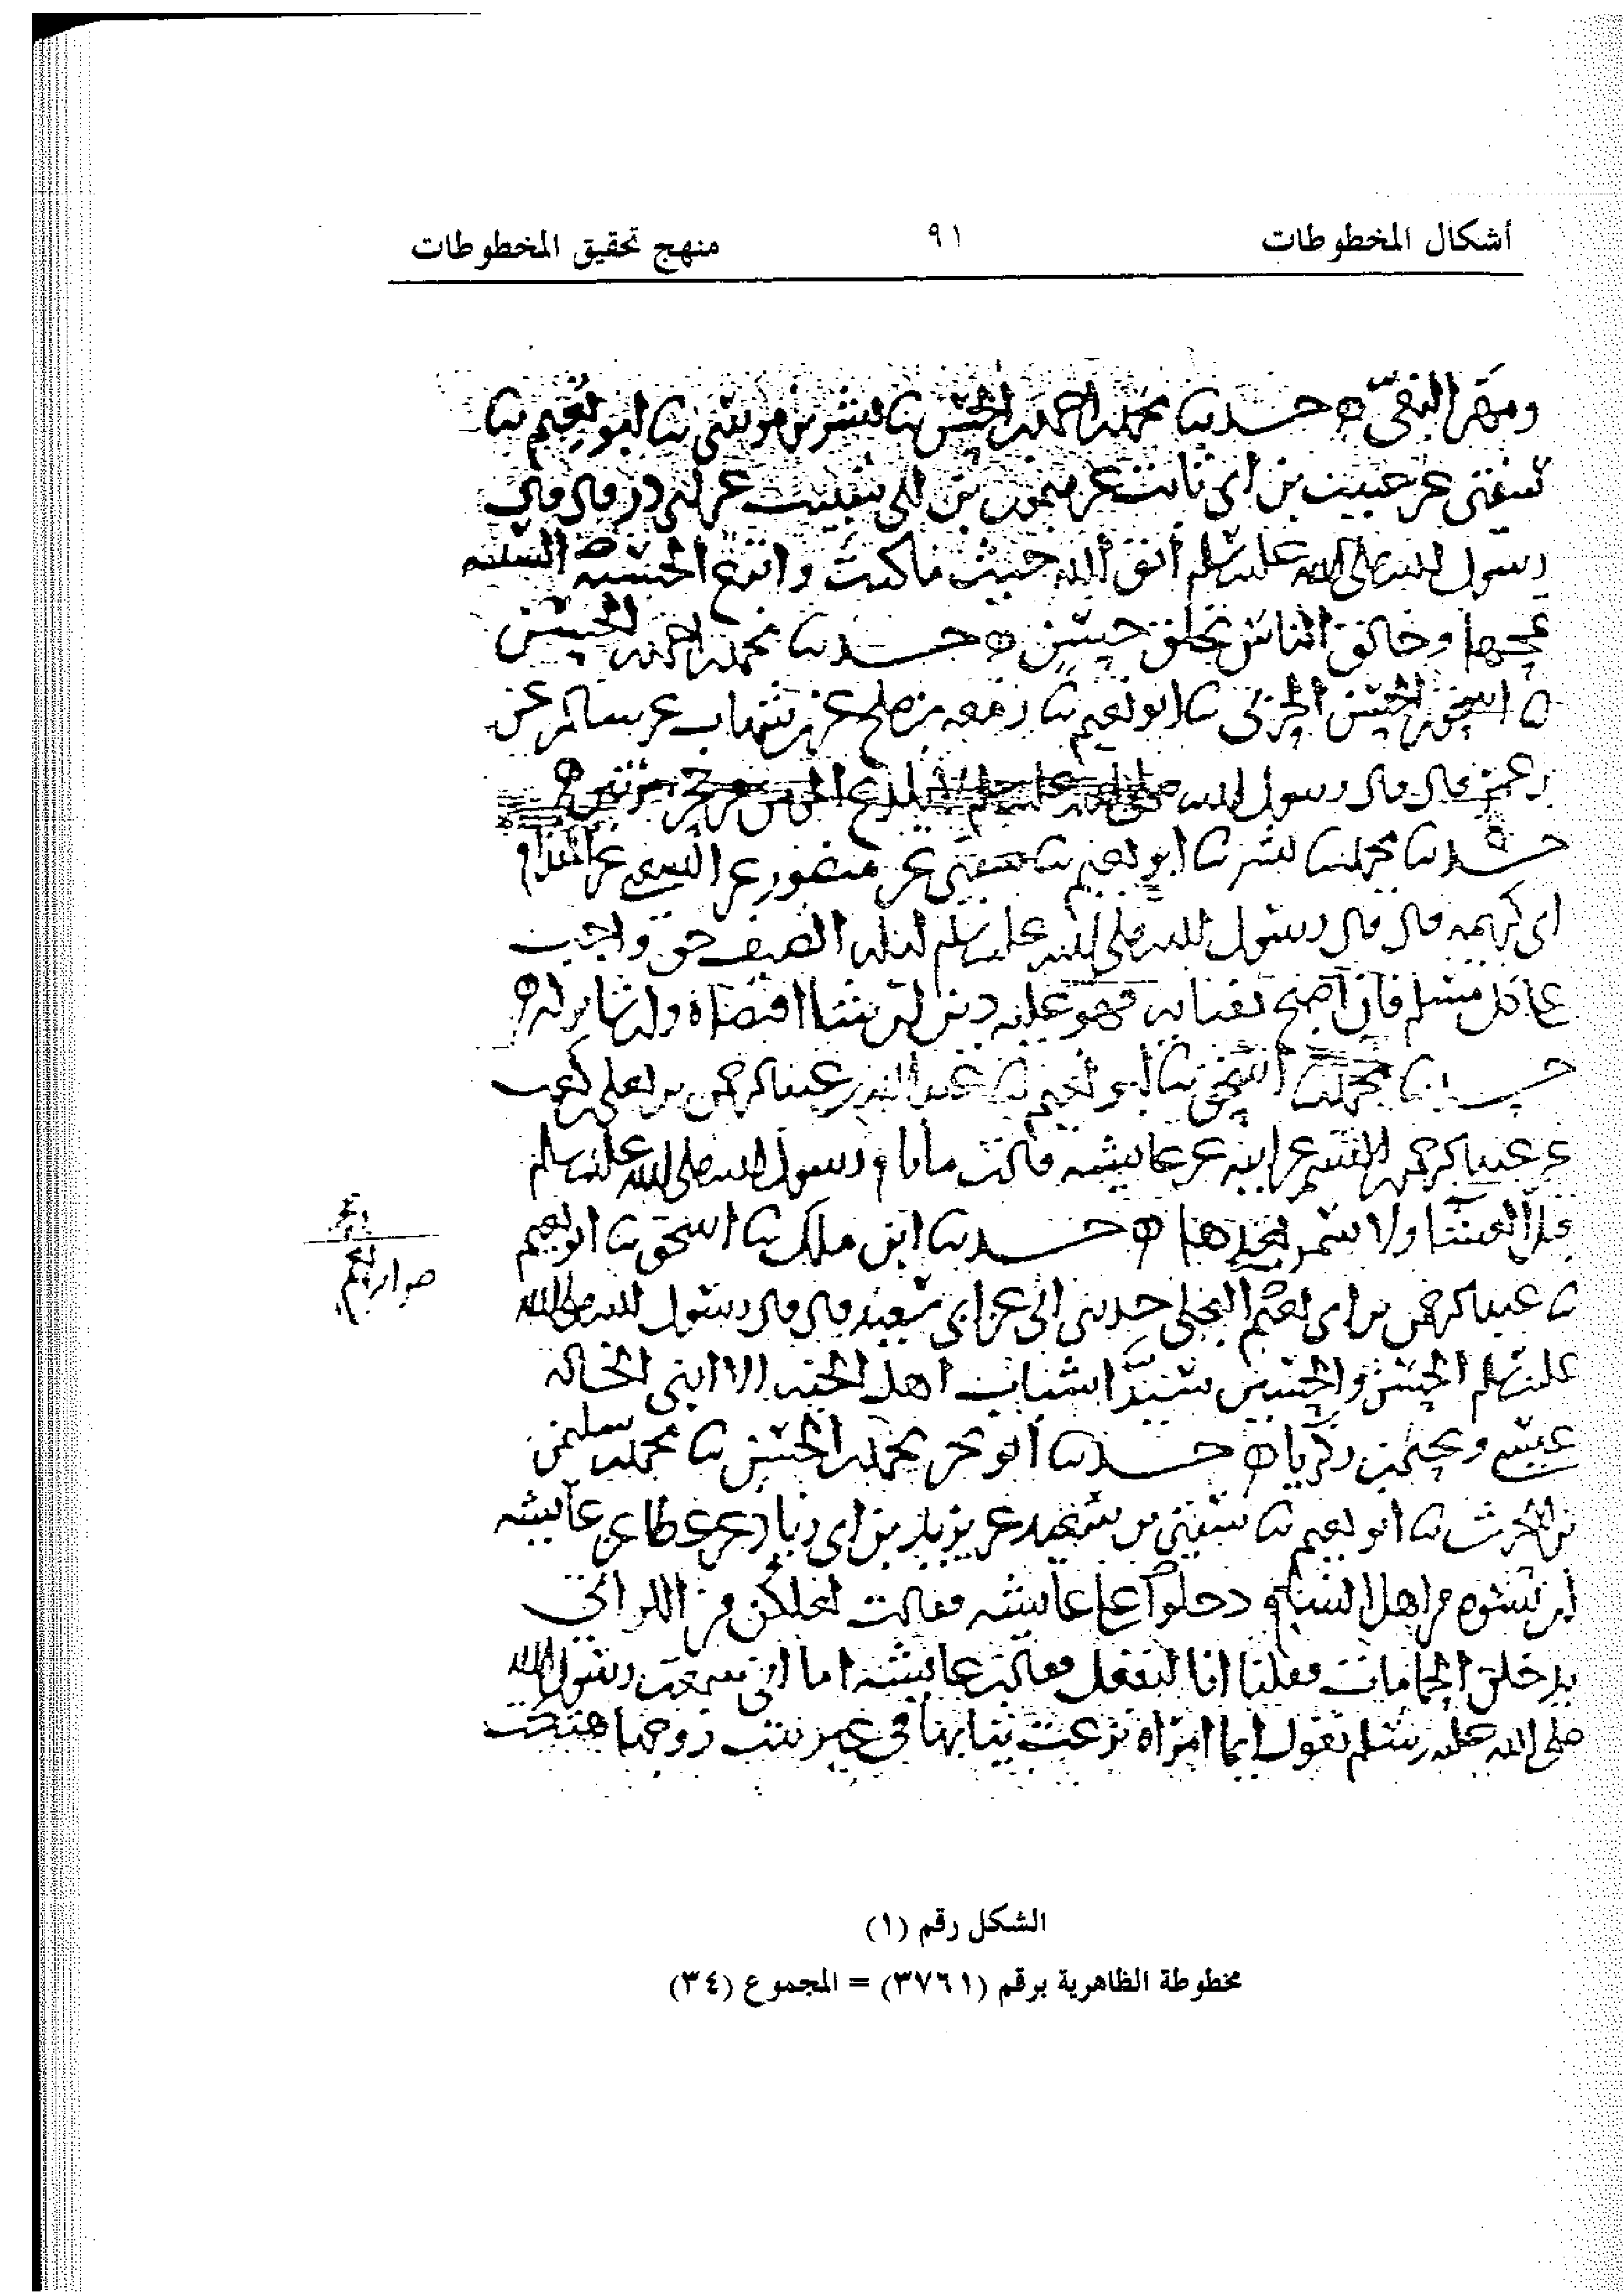 أشكال المخطوطات ٩١ منهج تحقيق المخطوطات
حدثنا محمد بن احمد بن الحسن نا بشر بن موسى نا ابو نعيم نا
سفين عن حبيب بن ابي ثابت عن ميمون بن ابي شبيب عن ابي ذر قال قال
رسول الله صلى الله عليه وسلم اتق الله حيث ما كنت واتبع الحسنة السيئة
تمحها وخالق الناس بخلق حسن حدثنا محمد بن احمد بن الحسن
نا اسحق بن الحسن الحربي نا ابو نعيم نا زمعه بن صلح عن بن شهاب عن سالم عن
بن عمر قال قال رسول الله صلى الله عليه وسلم لا يلدغ المومن من جحر مرتين
حدثنا محمد نا بشر نا ابو نعيم نا سفين عن منصور عن الشعبي عن المقدام
ابي كريمه قال قال رسول الله صلى الله عليه وسلم ليله الضيف حق واجب
على كل مسلم فان اصبح بفنايه فهو عليه دين ان شا اقتضاه وان شا تركه
حدثنا محمد نا اسحق نا ابو نعيم نا عبد الله بن عبد الرحمن بن يعلى بن كعب
عن عبد الرحمن بن القسم عن ابيه عن عايشه قالت ما نام رسول الله صلى الله عليه وسلم
قبل العشا ولا سمر بعدها حدثنا ابن ملك نا اسحق نا ابو نعيم
نا عبد الرحمن بن ابي نعيم البجلي حدثني ابي عن ابي سعيد قال قال رسول الله صلى الله
عليه وسلم الحسن والحسين سيدا شباب اهل الجنه الا ابني الخاله
عيسى ويحيى بن زكريا حدثنا ابو بحر محمد بن الحسن نا محمد بن سليمن
بن الحرث نا ابو نعيم نا سفين بن سعيد عن يزيد بن ابي زياد عن عطا عن عايشه
ان نسوه من اهل الشام دخلوا على عايشه فقالت لعلكن من اللواتي
يدخلن الحمامات فقلنا انا لنفعل فقالت عايشه اما اني سمعت رسول الله
صلى الله عليه وسلم يقول ايما امراه نزعت ثيابها في غير بيت زوجها هتكت
الشكل رقم (١)
مخطوطة الظاهرية برقم (٣٧٦١) = المجموع (٣٤)